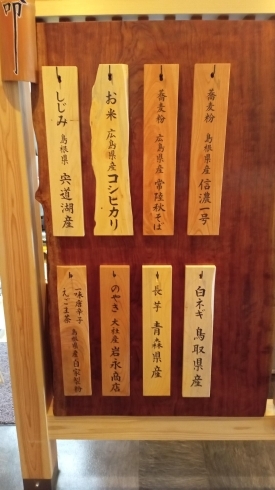 蕎麦粉 島根県産 信濃一号
蕎麦粉 広島県産 常陸秋そば
お米 広島県産 コシヒカリ
しじみ 島根県 宍道湖産
白ネギ 鳥取県産
長芋 青森県産
のやき 大社産 岩永商店
一味唐辛子
えごま茶
島根県産 自家製粉